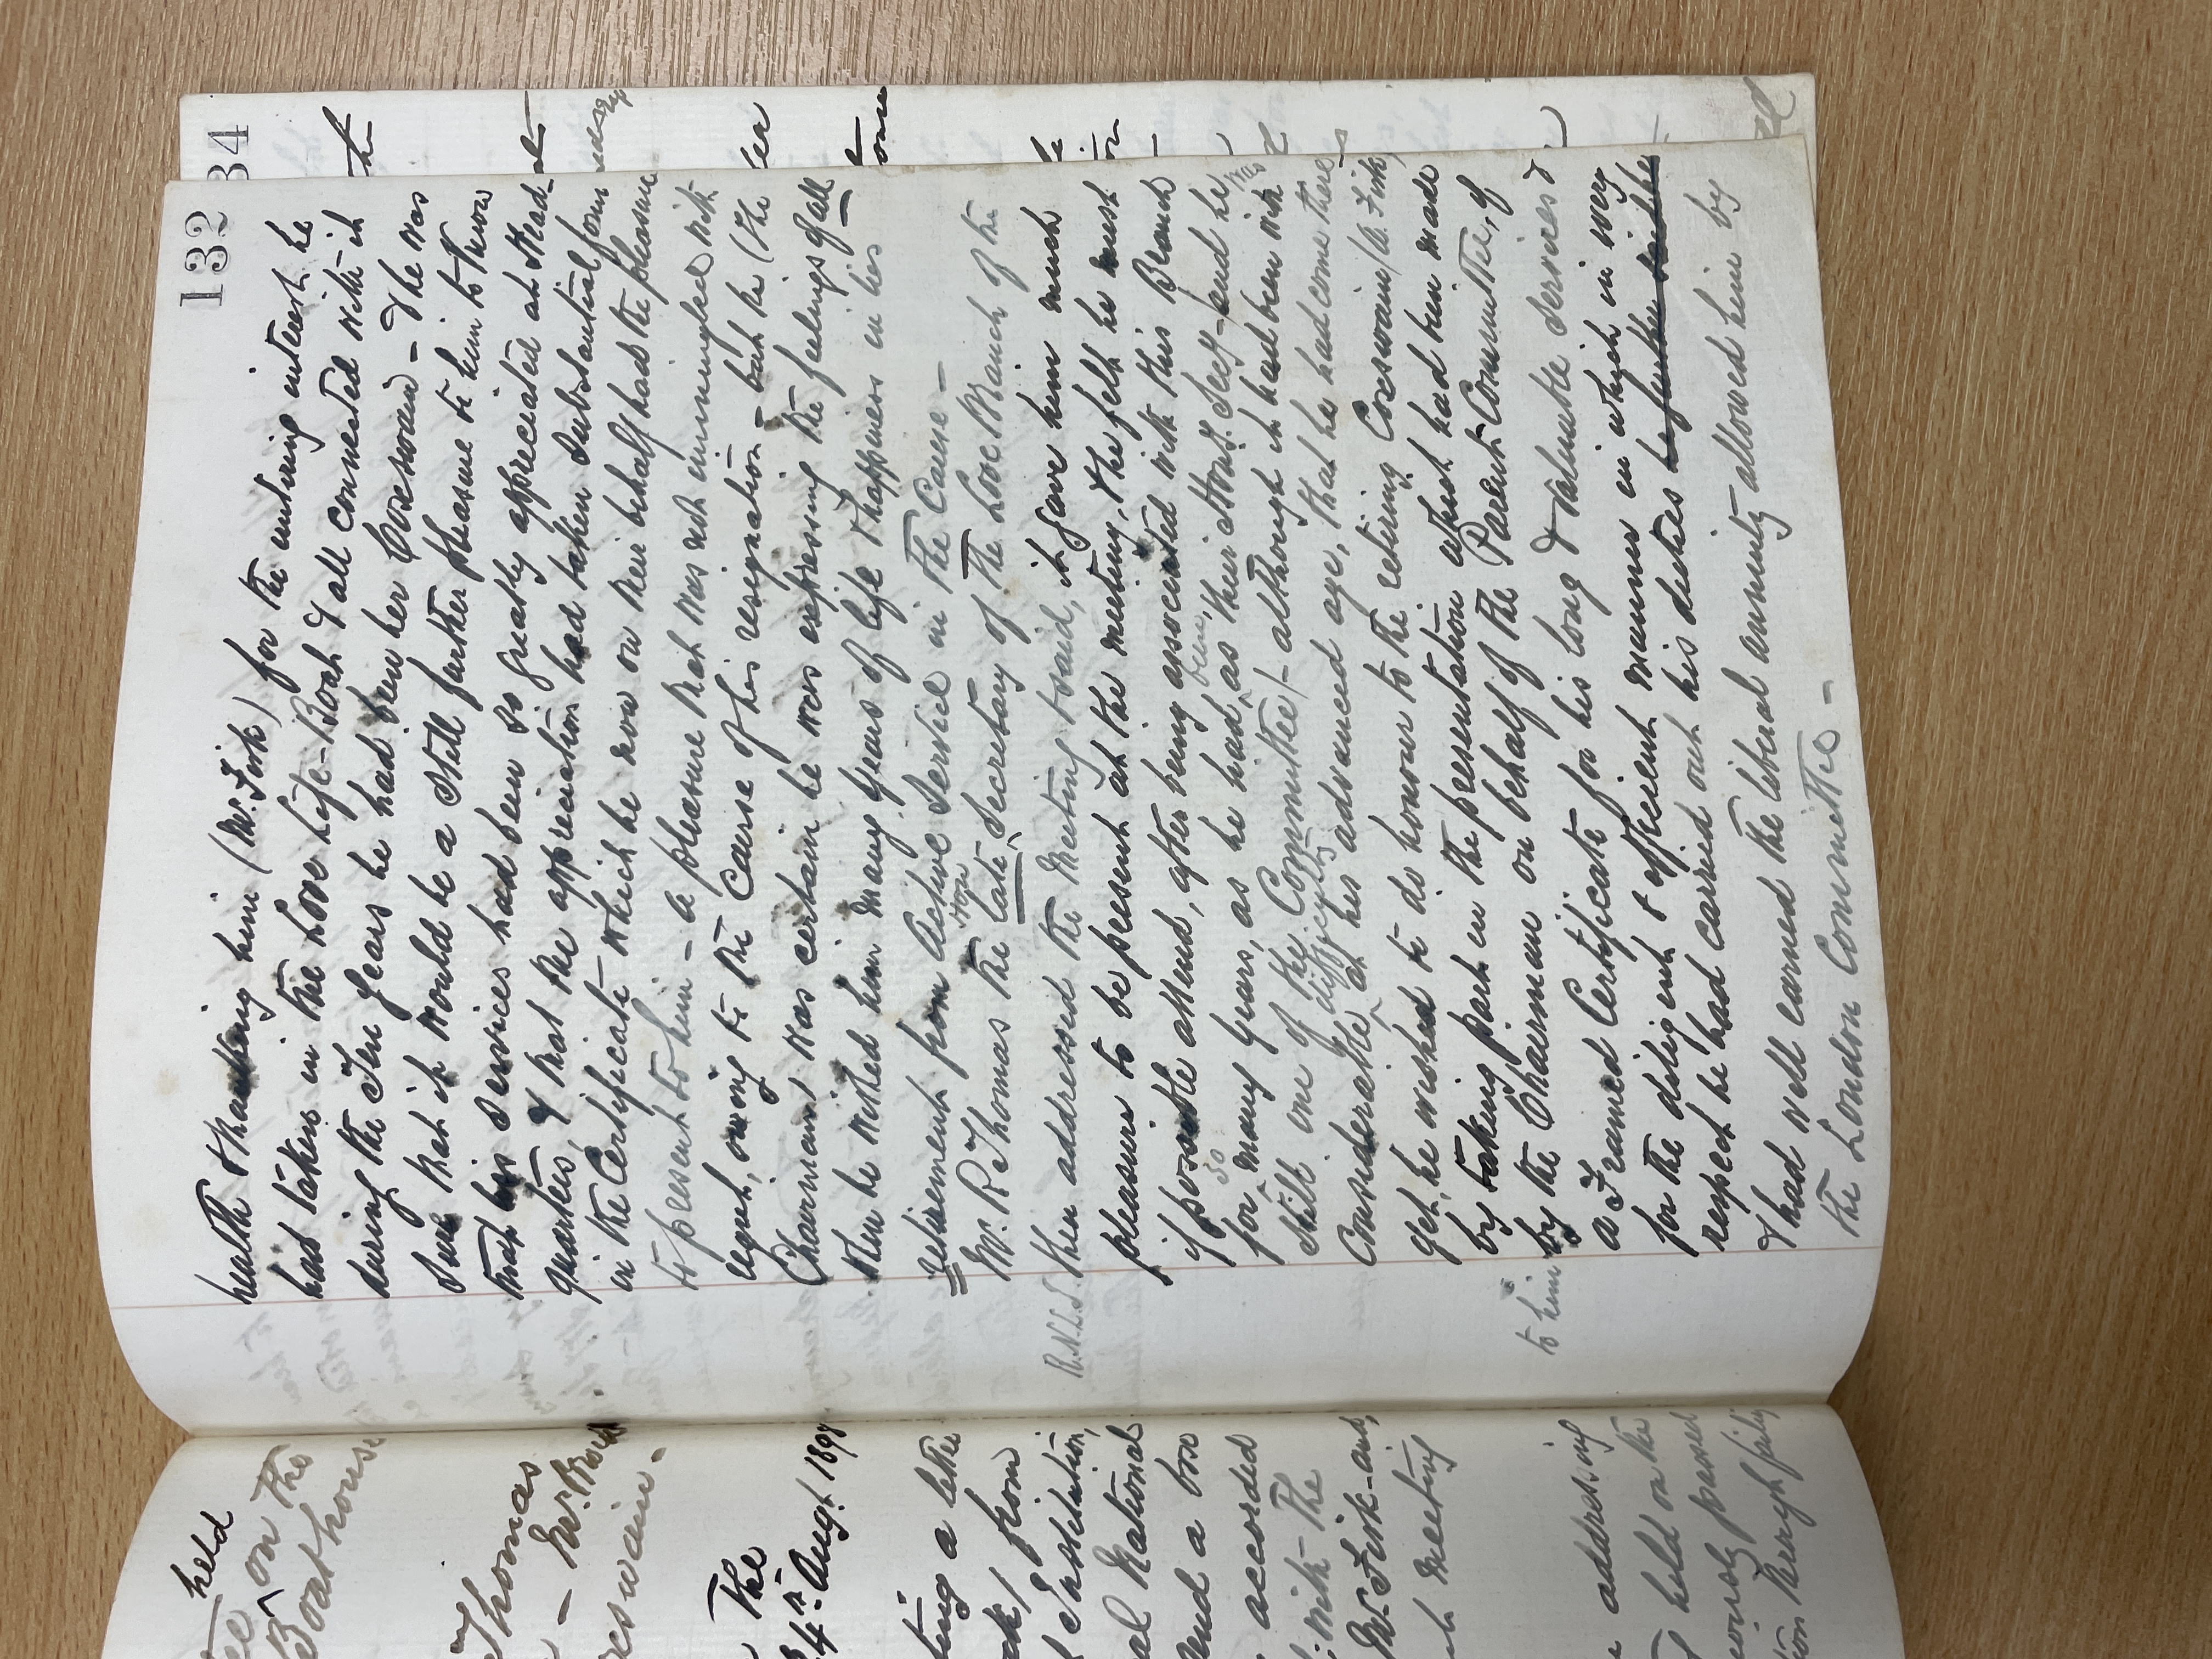 132
health & thanking him (Mr. Fisk) for the untiring interest he
had taken in the Looe Life-Boat & all connected with it
during the Ten years he had been her Coxswain - & he was
sure that it would be a still further pleasure to him to know
that his services had been so greatly appreciated at Head-
quarters, & that the appreciation had taken substantial form
in the Certificate which he now on their behalf had the pleasure
to present to him - a pleasure that was not unmingled with
regret, owing to the Cause of his resignation - but he (the
Chairman) was certain he was expressing the feelings of all
when he wished him many years of life & happiness in his
retirement from active Service in the Cause -
Mr. R. Thomas the late Hon Secretary of the Looe Branch of the
R.N.L.I. then addressed the Meeting & said, it gave him much
pleasure to be present at the meeting, & he felt he must
if possible attend, after being associated with this Branch
for so many years, as he had been, as their Hony. Secy. - (and he was
still one of the Committee) - although it had been with
Considerable difficulty at his advanced age, that he had come there,
yet, he wished to do honour to the retiring Coxswain (E. Fisk,
by taking part in the presentation which had been made
to him by the Chairman on behalf of the Parent Committee, of
a Framed Certificate for his long & valuable services &
for the diligent & efficient manner in which in every
respect he had carried out his duties he further said he
& had well earned the liberal annuity allowed him by
the London Committee -
34
held
on the
Boathouse
Thomas
- Mr.
The
4th Augt. 189
a letter
from
Institution,
National
and a
accorded
with - The
Mr. Fisk - and,
meeting
addressing
held on the
passed
through fully